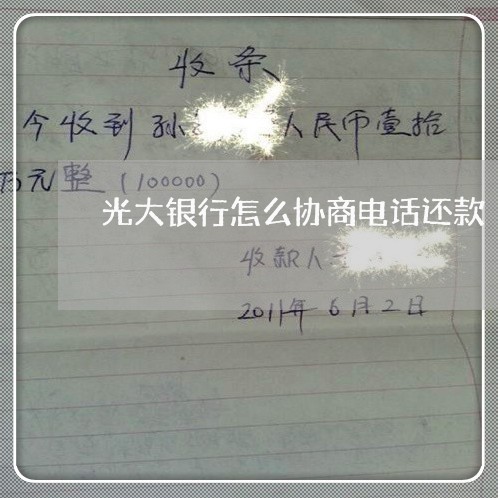 收条
今收到孙 人民币壹拾
万元整(100000)
光大银行怎么协商电话还款
收款人
2011年6月2日